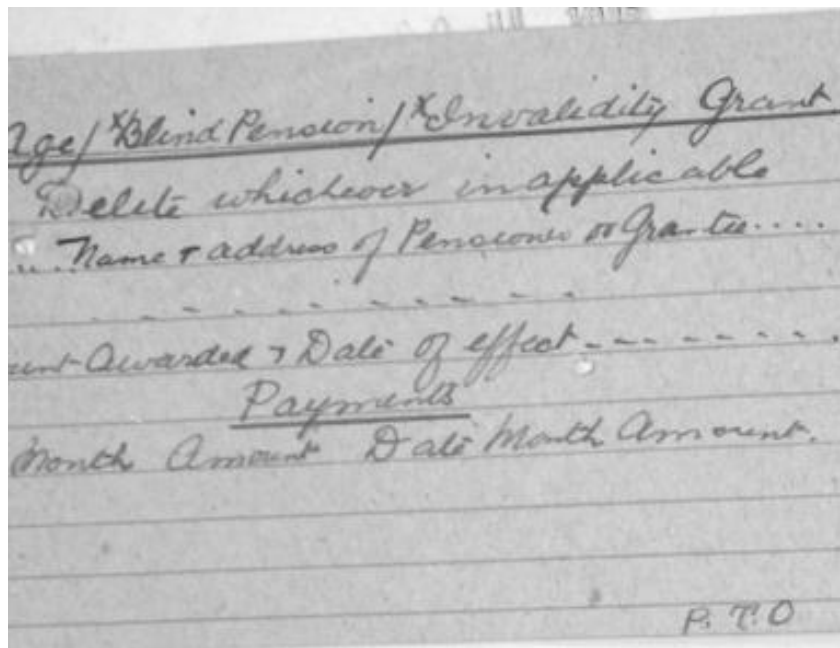 Age/ xBlind Pension/ xInvalidity Grant
Delete whichever inapplicable
....Name & address of Pensioner or Grantee....
- - - - - - - - - -
Awarded & Date of effect - - - - - - - -
Payments
Month Amount Date Month Amount.
P. T. O